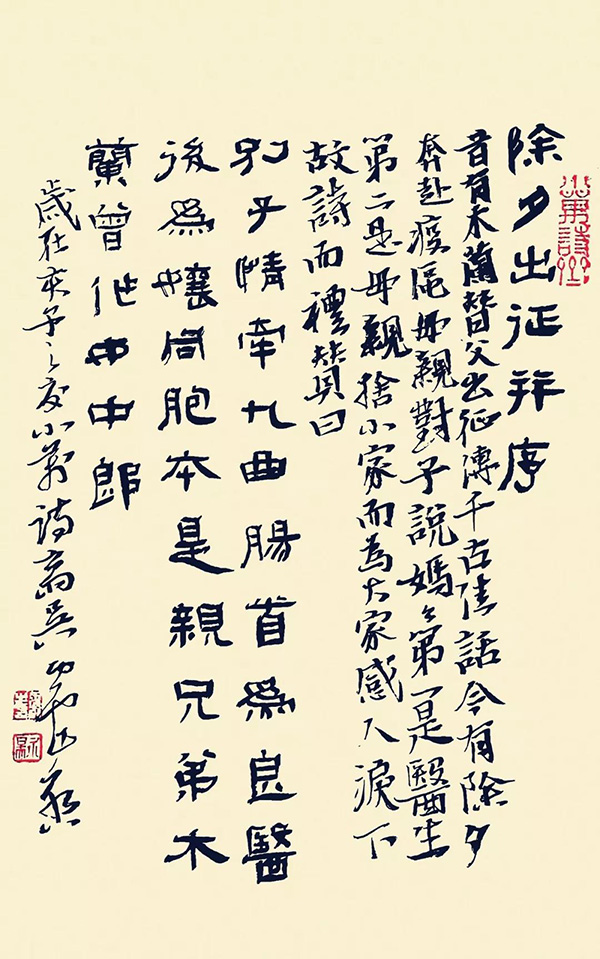 除夕出征并序
昔有木蘭替父出征傳千古佳話今有除夕
奔赴疫區母親對子說媽々第一是醫生
第二是母親捨小家而為大家感人淚下
故詩而禮贊曰
別子情牽九曲腸首爲良醫
後爲孃同胞本是親兄弟木
蘭曾作女中郎
歲在庚子之